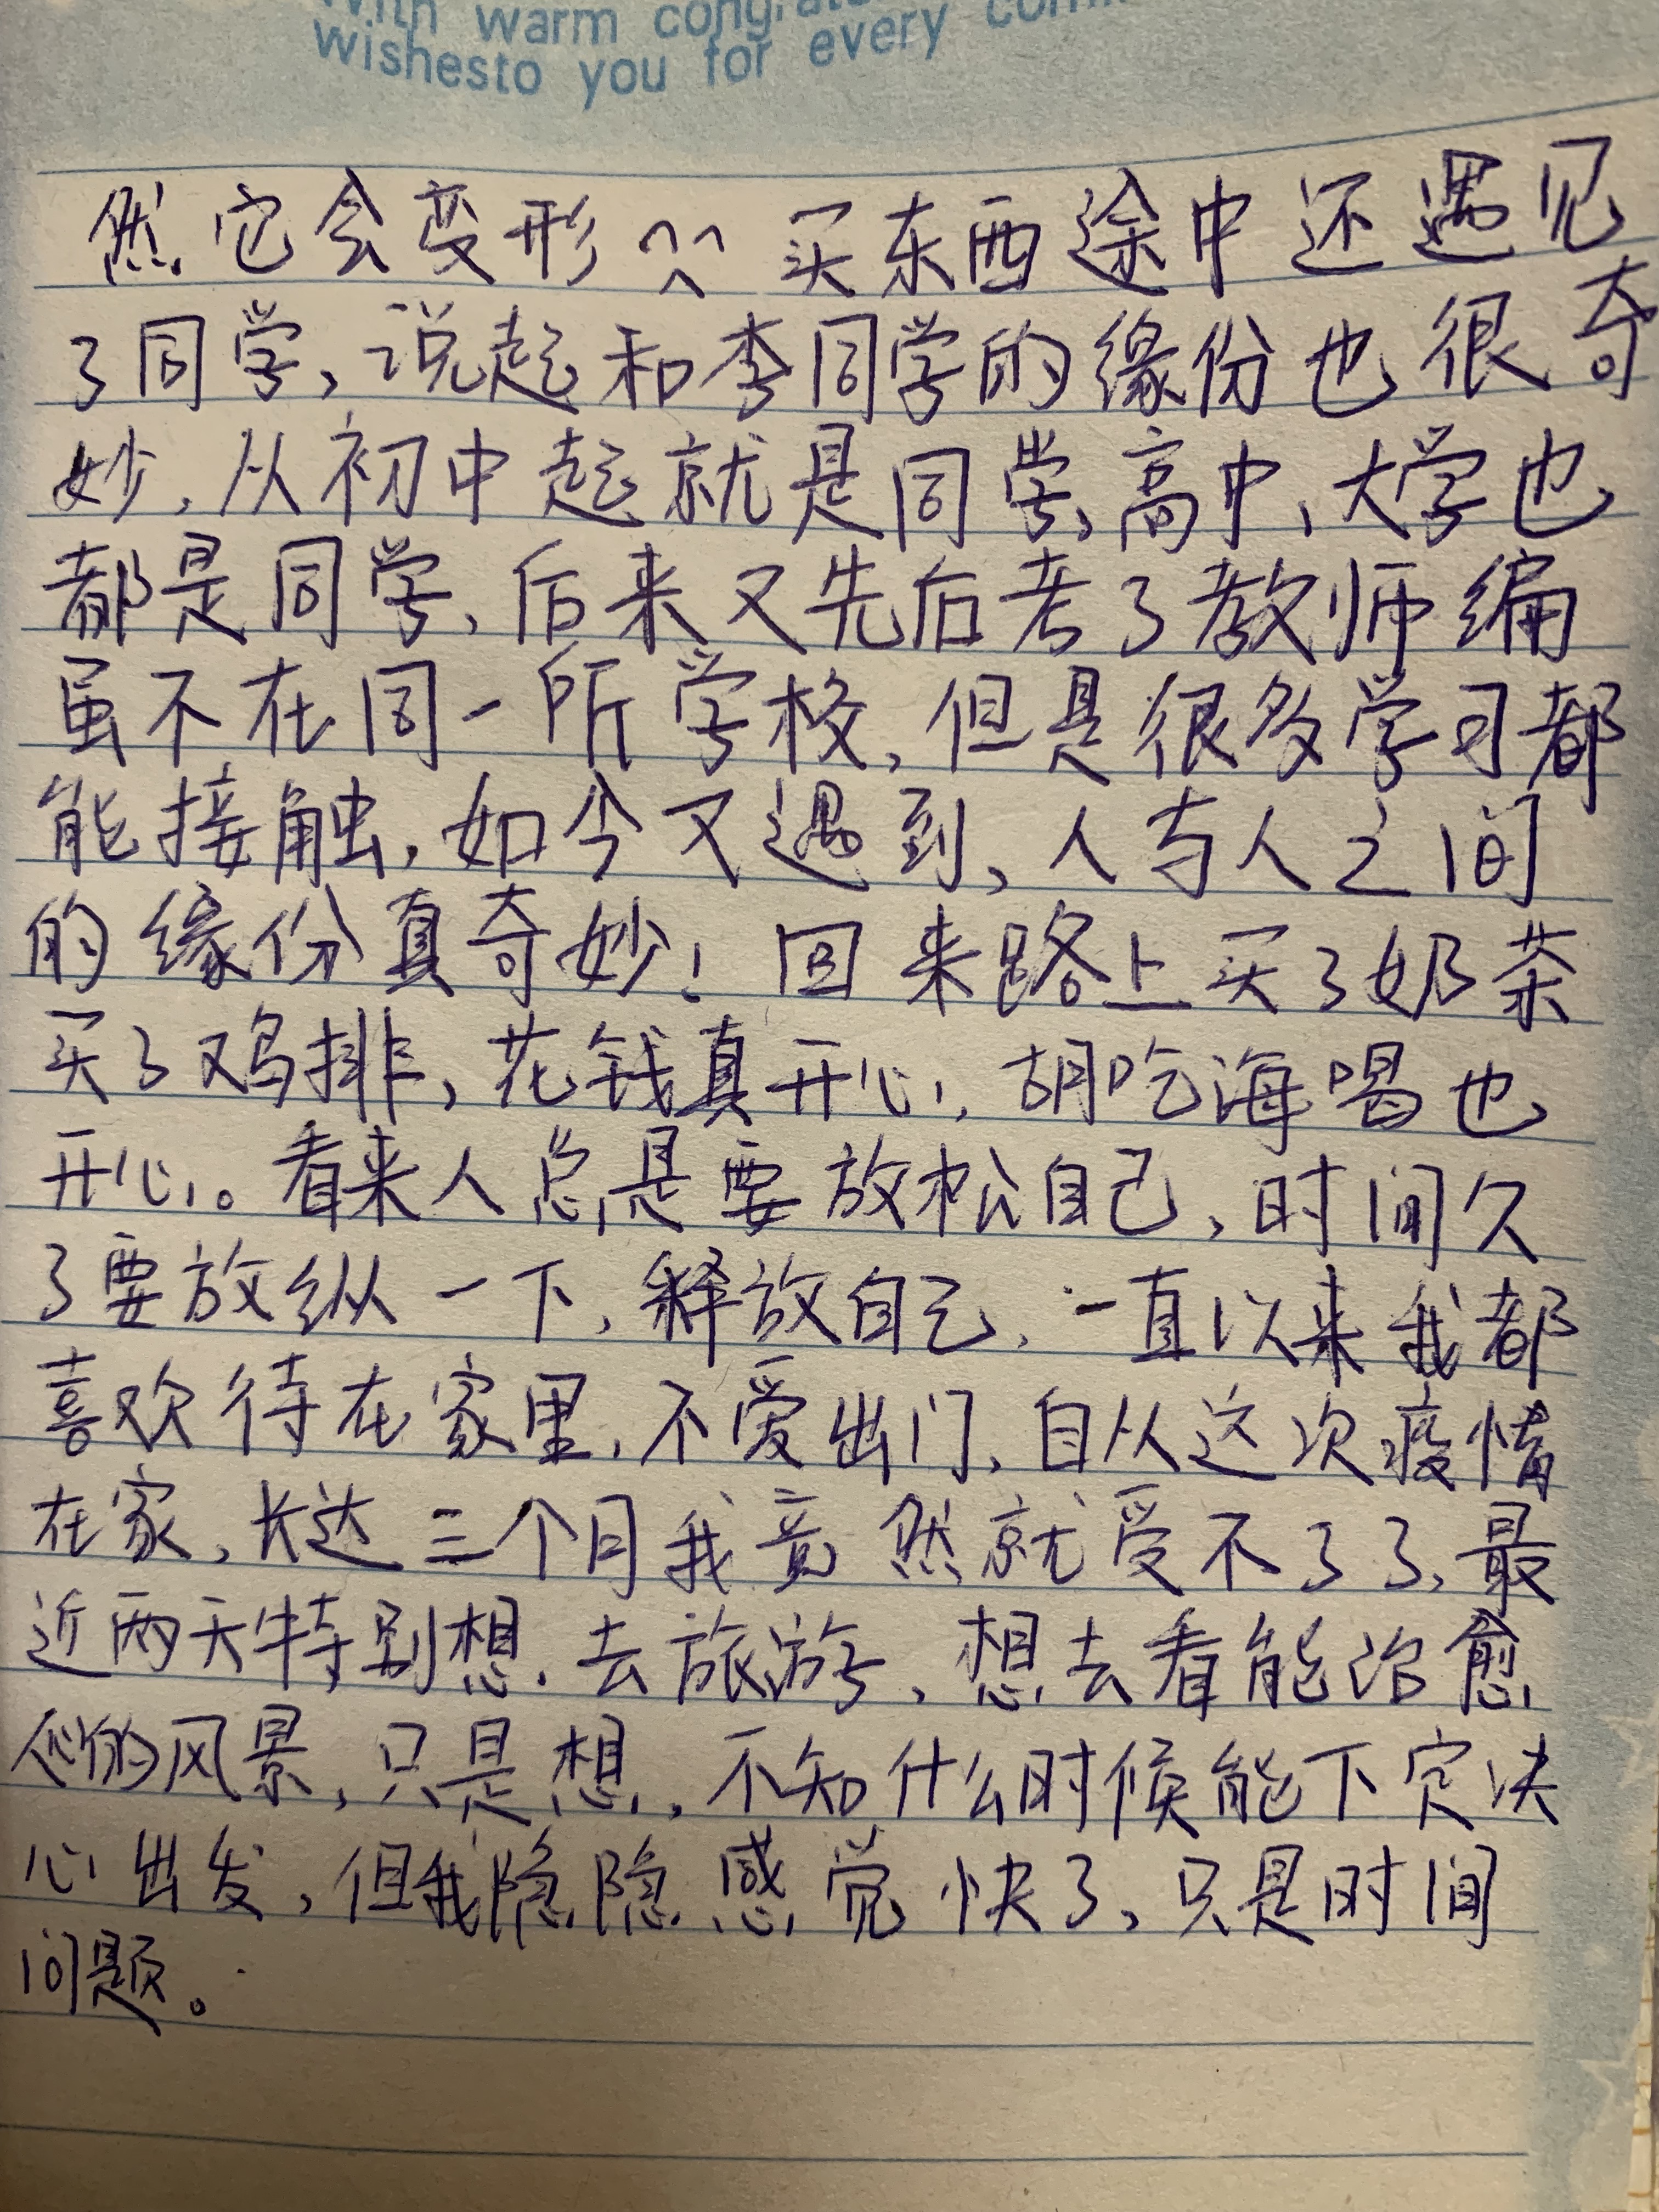 with warm congrat
wishesto you for every com
然它会变形^^ 买东西途中还遇见
了同学,说起和李同学的缘份也很奇
妙,从初中起就是同学,高中,大学也
都是同学,后来又先后考了教师编
虽不在同一所学校,但是很多学习都
能接触,如今又遇到,人与人之间
的缘份真奇妙!回来路上买了奶茶
买了鸡排,花钱真开心,胡吃海喝也
开心。看来人总是要放松自己,时间久
了要放纵一下,释放自己,一直以来我都
喜欢待在家里,不爱出门,自从这次疫情
在家,长达三个月我竟然就受不了了,最
近两天特别想,去旅游,想去看能治愈
人心的风景,只是想,不知什么时候能下定决
心出发,但我隐隐感觉快了,只是时间
问题。